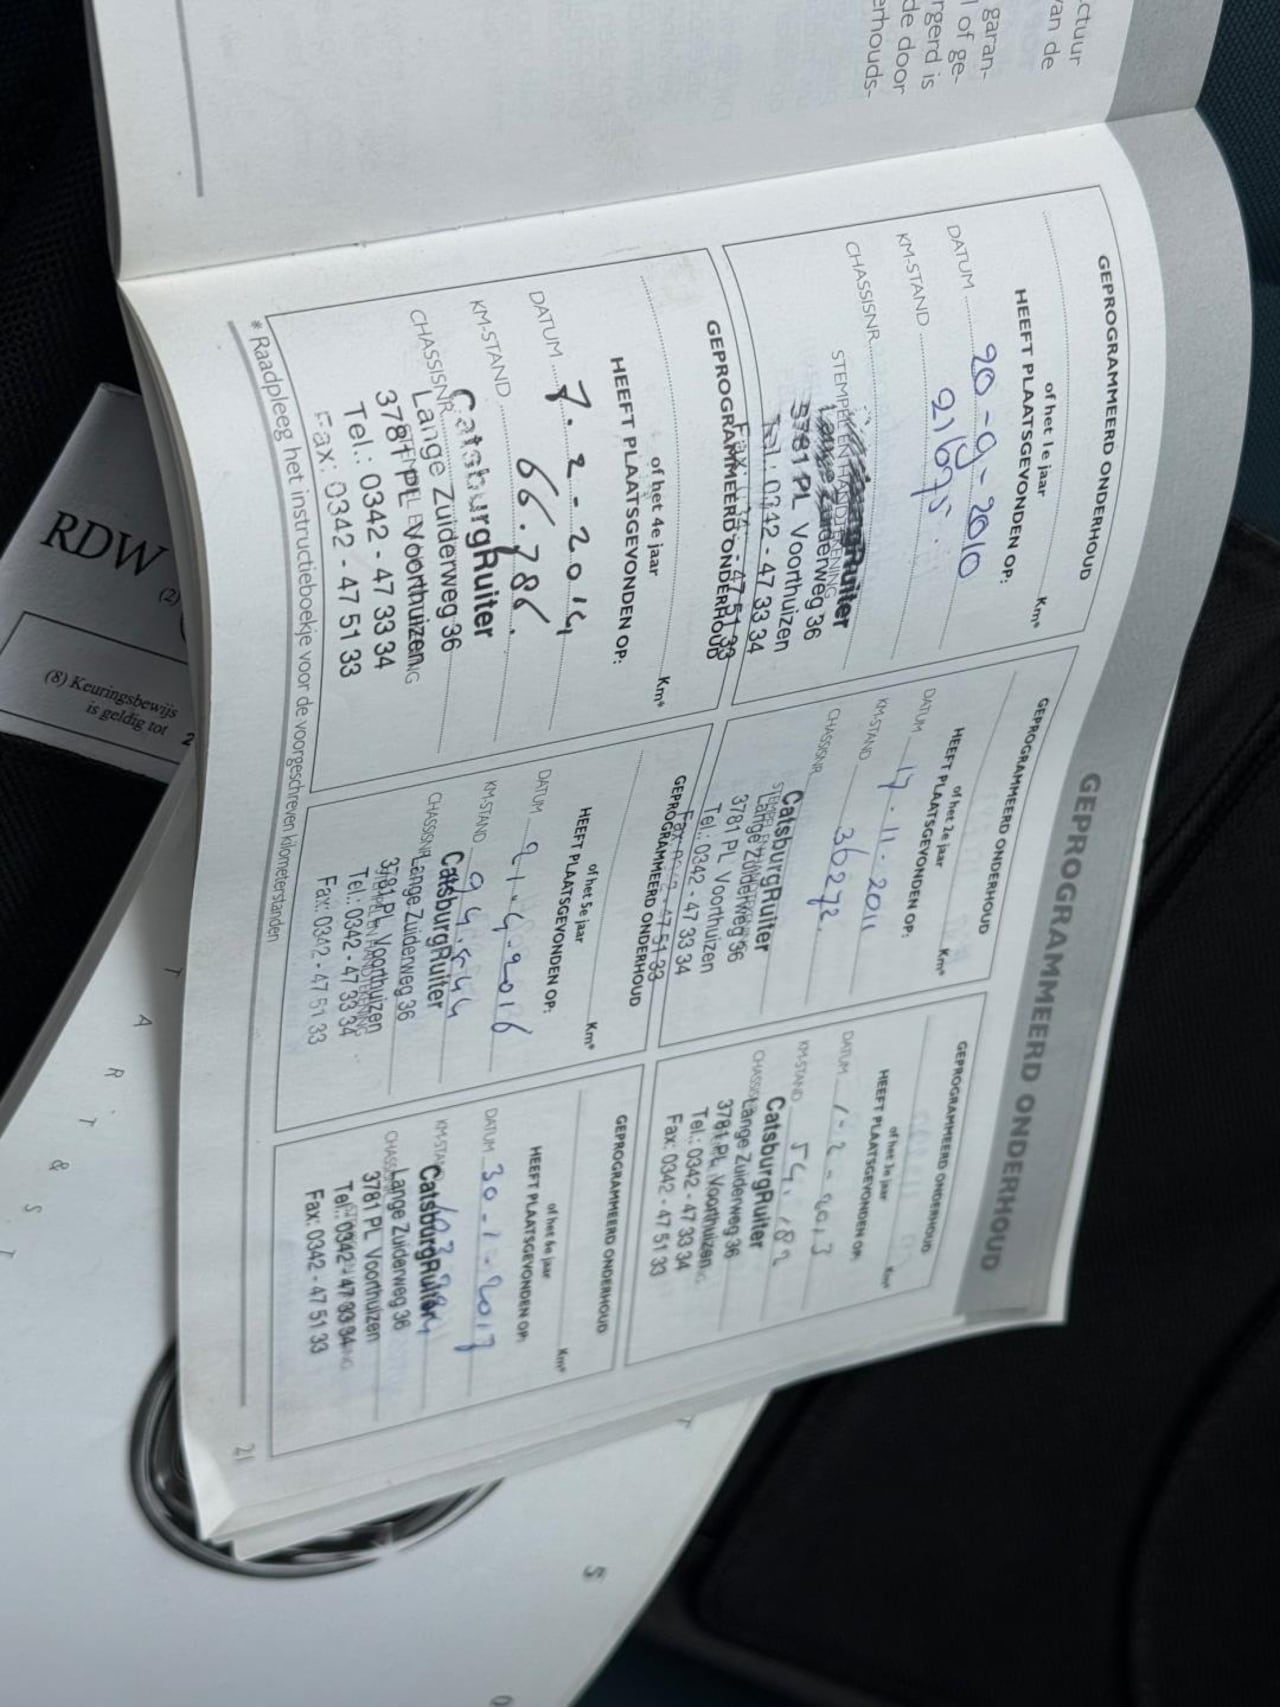 ctuur
van de
garan-
l of ge-
rgerd is
de door
erhouds-
GEPROGRAMMEERD ONDERHOUD
GEPROGRAMMEERD ONDERHOUD
of het 1e jaar
Km*
HEEFT PLAATSGEVONDEN OP:
DATUM 20-9-2010
KM-STAND 21695.
CHASSISNR.
STEMPEL EN HANDTEKENING
Lange Zuiderweg 36
3781 PL Voorthuizen
Tel.: 0342 - 47 33 34
GEPROGRAMMEERD ONDERHOUD
of het 2e jaar
Km*
HEEFT PLAATSGEVONDEN OP:
DATUM 17-11-2011
KM-STAND 36272.
CHASSISNR.
CatsburgRuiter
Lange Zuiderweg 36
3781 PL Voorthuizen
Tel.: 0342 - 47 33 34
Fax: 0342 - 47 51 33
GEPROGRAMMEERD ONDERHOUD
of het 3e jaar
Km*
HEEFT PLAATSGEVONDEN OP:
DATUM 1-2-2013
KM-STAND
CHASSISNR.
CatsburgRuiter
Lange Zuiderweg 36
3781 PL Voorthuizen
Tel.: 0342 - 47 33 34
Fax: 0342 - 47 51 33
GEPROGRAMMEERD ONDERHOUD
of het 4e jaar
Km*
HEEFT PLAATSGEVONDEN OP:
DATUM 7.2-2014
KM-STAND 66.786.
CHASSISNR.
CatsburgRuiter
Lange Zuiderweg 36
3781 PL Voorthuizen
Tel.: 0342 - 47 33 34
Fax: 0342 - 47 51 33
GEPROGRAMMEERD ONDERHOUD
of het 5e jaar
Km*
HEEFT PLAATSGEVONDEN OP:
DATUM 21-4-2016
KM-STAND 94.544
CHASSISNR.
CatsburgRuiter
Lange Zuiderweg 36
3781 PL Voorthuizen
Tel.: 0342 - 47 33 34
Fax: 0342 - 47 51 33
GEPROGRAMMEERD ONDERHOUD
of het 6e jaar
Km*
HEEFT PLAATSGEVONDEN OP:
DATUM 30-1-2017
KM-STAND
CatsburgRuiter
Lange Zuiderweg 36
3781 PL Voorthuizen
Tel.: 0342 - 47 33 34
Fax: 0342 - 47 51 33
* Raadpleeg het instructieboekje voor de voorgeschreven kilometerstanden
21
RDW
(2)
(8) Keuringsbewijs
is geldig tot 2
A R T & S